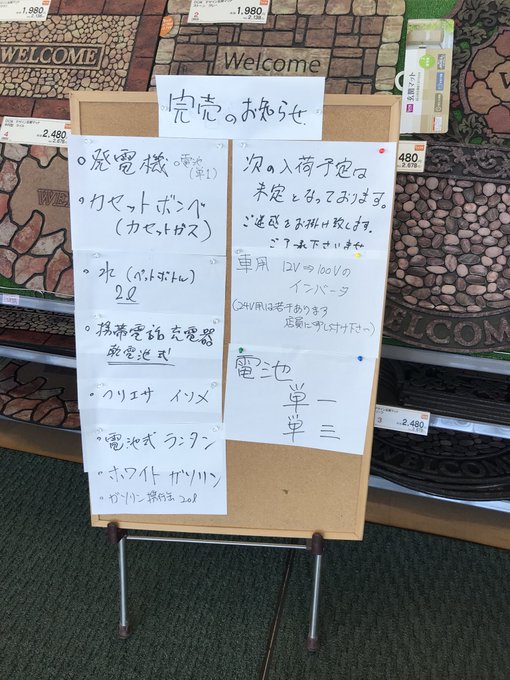 完売のお知らせ
・発電機 ○電池(単1)
・カセットボンベ
(カセットガス)
・水 (ペットボトル)
2ℓ
・携帯電話充電器
乾電池式
・クリエサ イソメ
・電池式 ランタン
・ホワイト ガソリン
・ガソリン携行缶 20ℓ
次の入荷予定は
未定となっております。
ご迷惑をお掛け致します。
ご了承下さいませ
車用 12V⇒100Vの
インバータ
(24V用は若干あります
店員に申し付け下さい)
電池
単一
単三
WELCOME
Welcome
WELCOME
1,980
1,980
2,480
480
2,480
玄関マット